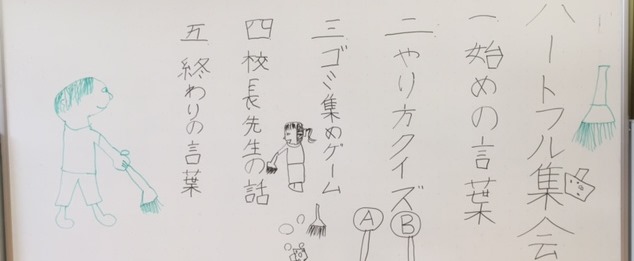 ハートフル集会
一 始めの言葉
二 やり方クイズ
三 ゴミ集めゲーム
四 校長先生の話
五 終わりの言葉
A B